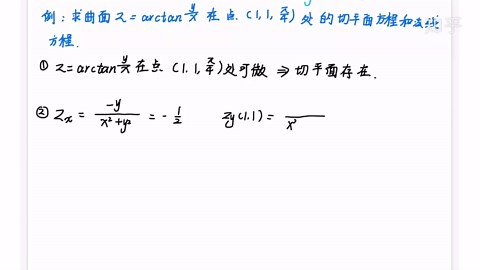 例: 求曲面 Z = arctan y/x 在点 (1,1,π/4) 处的切平面方程和法线
方程.
① z = arctan y/x 在点 (1.1,π/4) 处可微 ⇒ 切平面存在.
② Zx = -y/(x²+y²) = -1/2 zy(1.1) = —/x²